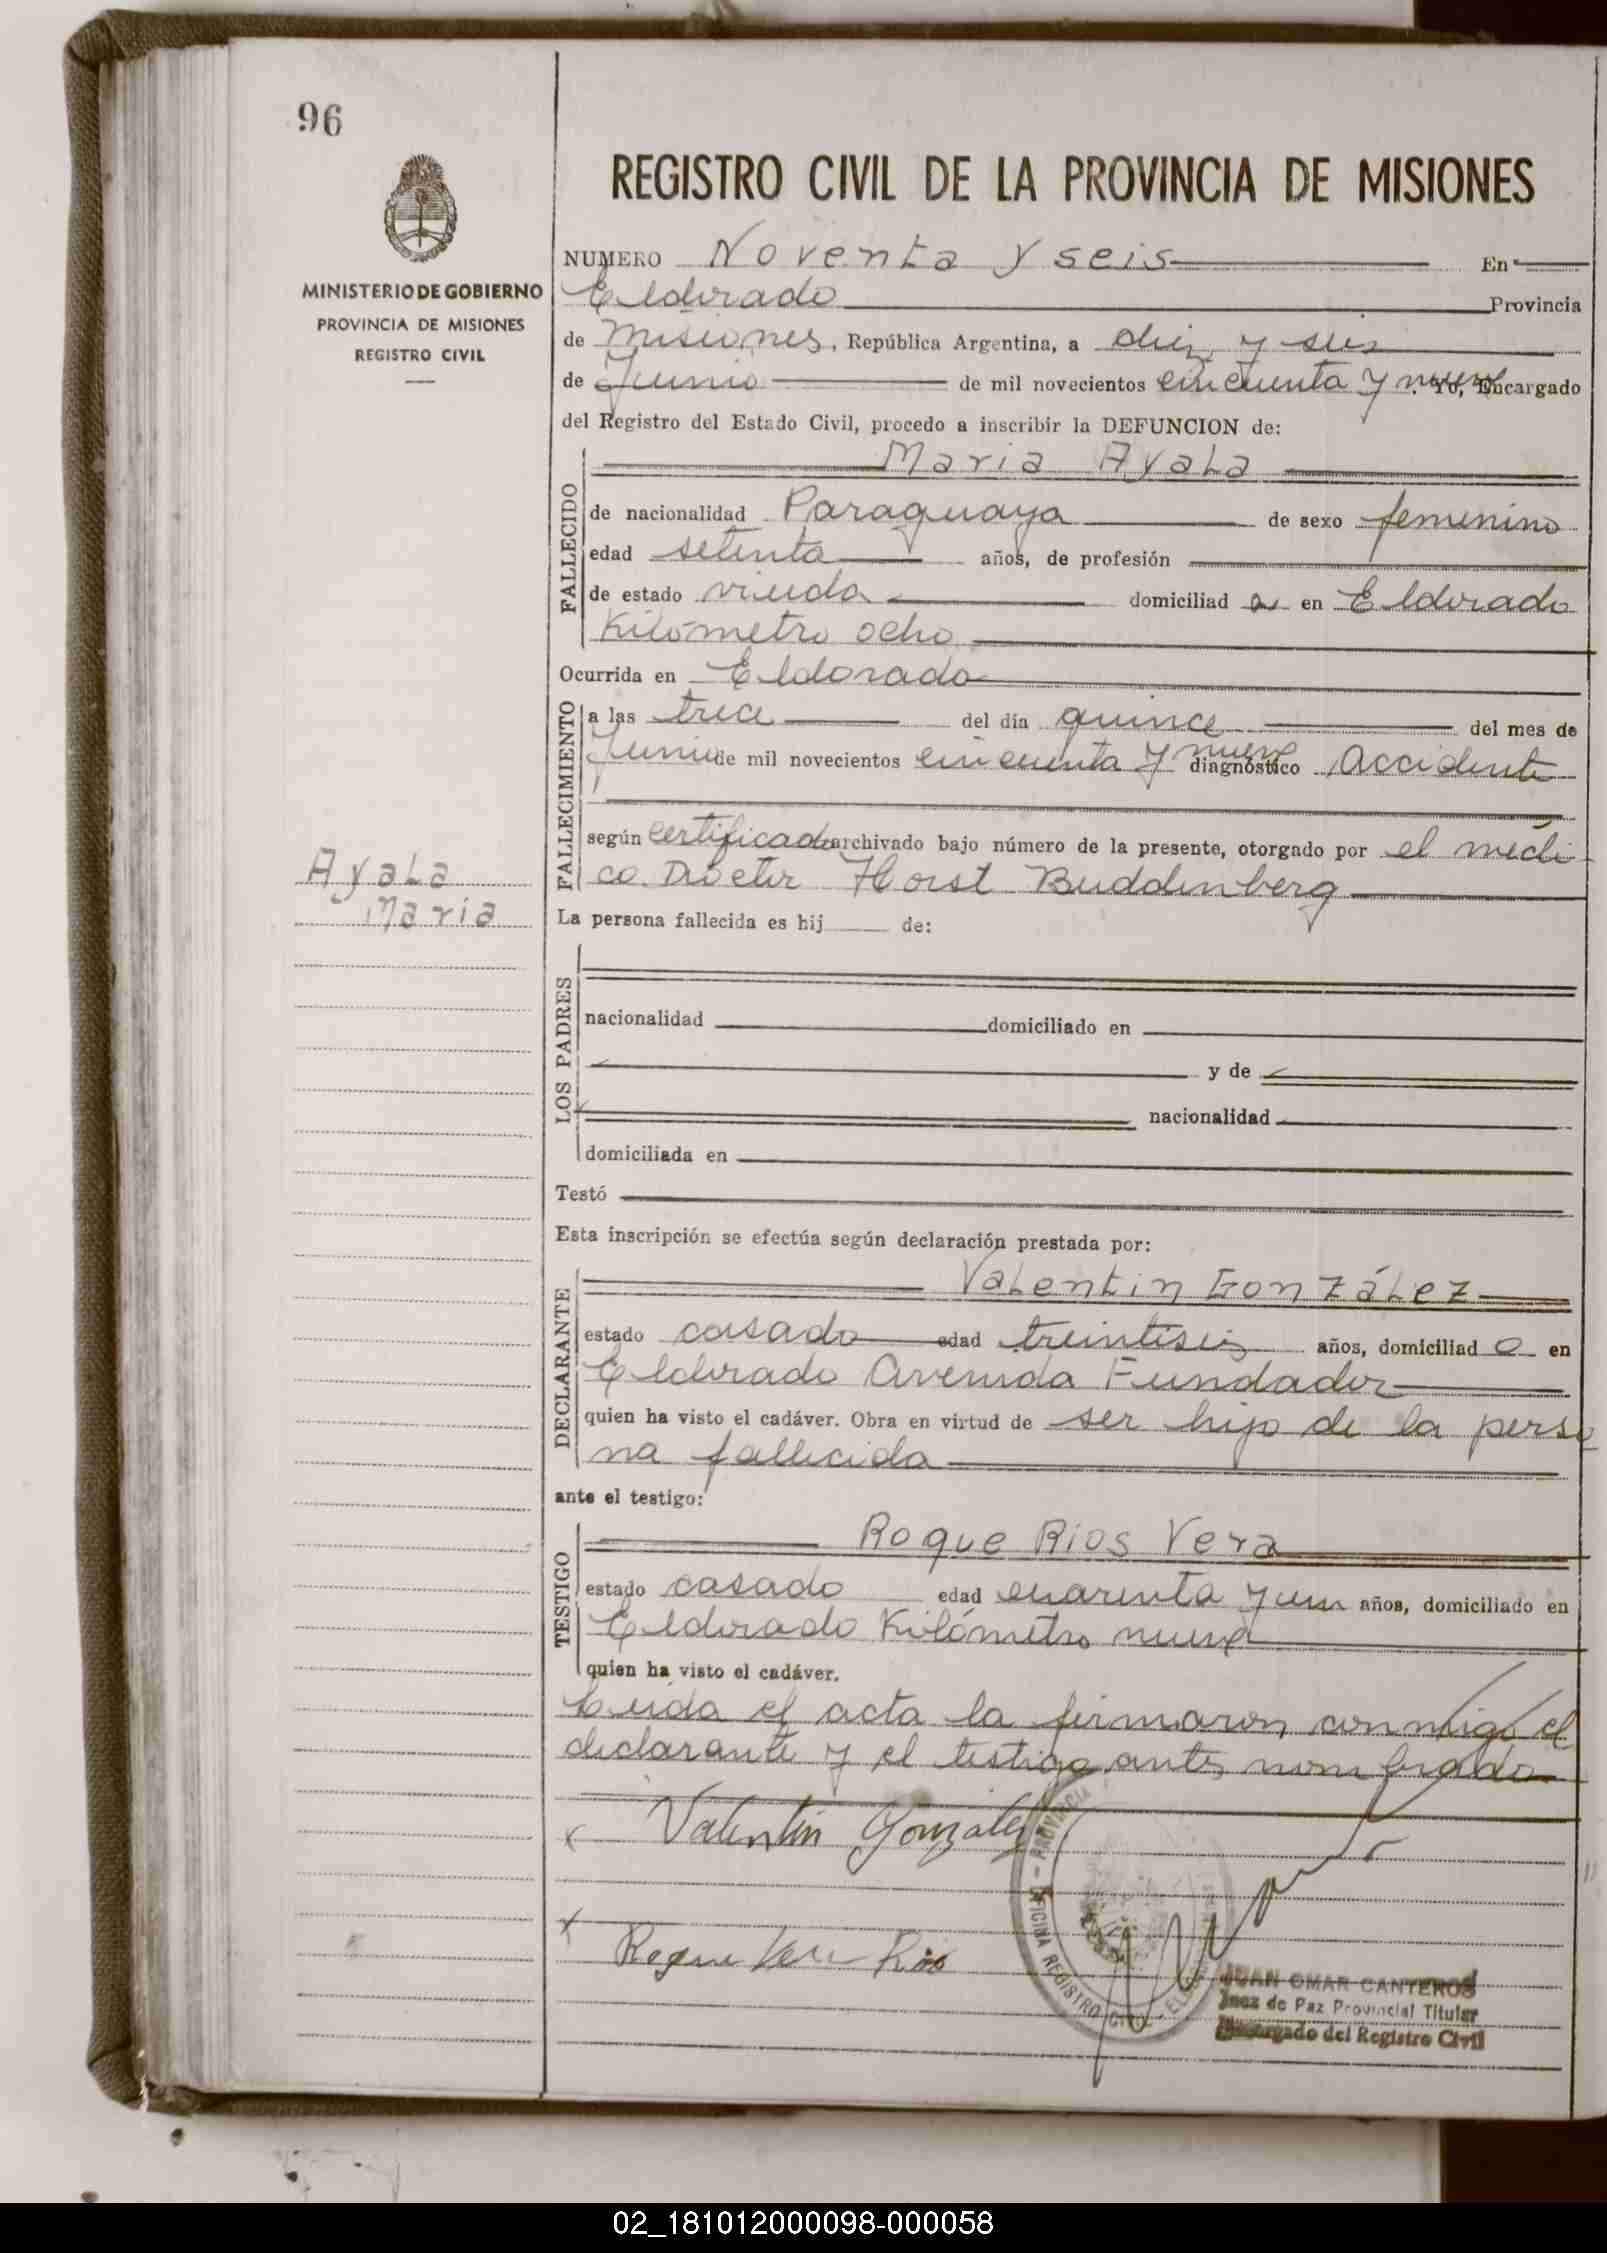 96
REGISTRO CIVIL DE LA PROVINCIA DE MISIONES
MINISTERIO DE GOBIERNO
PROVINCIA DE MISIONES
REGISTRO CIVIL
NUMERO Noventa y seis En
Eldorado Provincia
de Misiones, República Argentina, a diez y seis
de Junio de mil novecientos cincuenta y nueve. Yo, Encargado
del Registro del Estado Civil, procedo a inscribir la DEFUNCION de:
Maria Ayala
FALLECIDO
de nacionalidad Paraguaya de sexo femenino
edad setenta años, de profesión
de estado viuda domiciliad a en Eldorado
Kilómetro ocho
Ocurrida en Eldorado
FALLECIMIENTO
a las trece del día quince del mes de
Junio de mil novecientos cincuenta y nueve diagnóstico Accidente
según certificado archivado bajo número de la presente, otorgado por el médi
co Doctor Horst Buddenberg
Ayala
Maria
La persona fallecida es hij de:
LOS PADRES
nacionalidad domiciliado en
y de
nacionalidad
domiciliada en
Testó
Esta inscripción se efectúa según declaración prestada por:
Valentin González
DECLARANTE
estado casado edad treintiseis años, domiciliad o en
Eldorado Avenida Fundador
quien ha visto el cadáver. Obra en virtud de ser hijo de la perso
na fallecida
ante el testigo:
Roque Rios Vera
TESTIGO
estado casado edad cuarenta y un años, domiciliado en
Eldorado Kilómetro nueve
quien ha visto el cadáver.
Leida el acta la firmaron conmigo el
declarante y el testigo antes nombrado
Valentin Gonzalez
Roque Vera Rios
PROVINCIA
OFICINA REGISTRO CIVIL
JUAN OMAR CANTEROS
Juez de Paz Provincial Titular
Encargado del Registro Civil
02_181012000098-000058